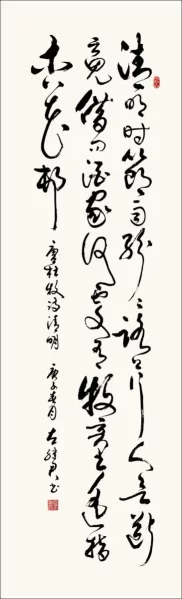 清明时節雨紛〻路上行人欲斷
魂借问酒家何处有牧童遥指
杏花村 唐杜牧诗清明 庚子春月 书